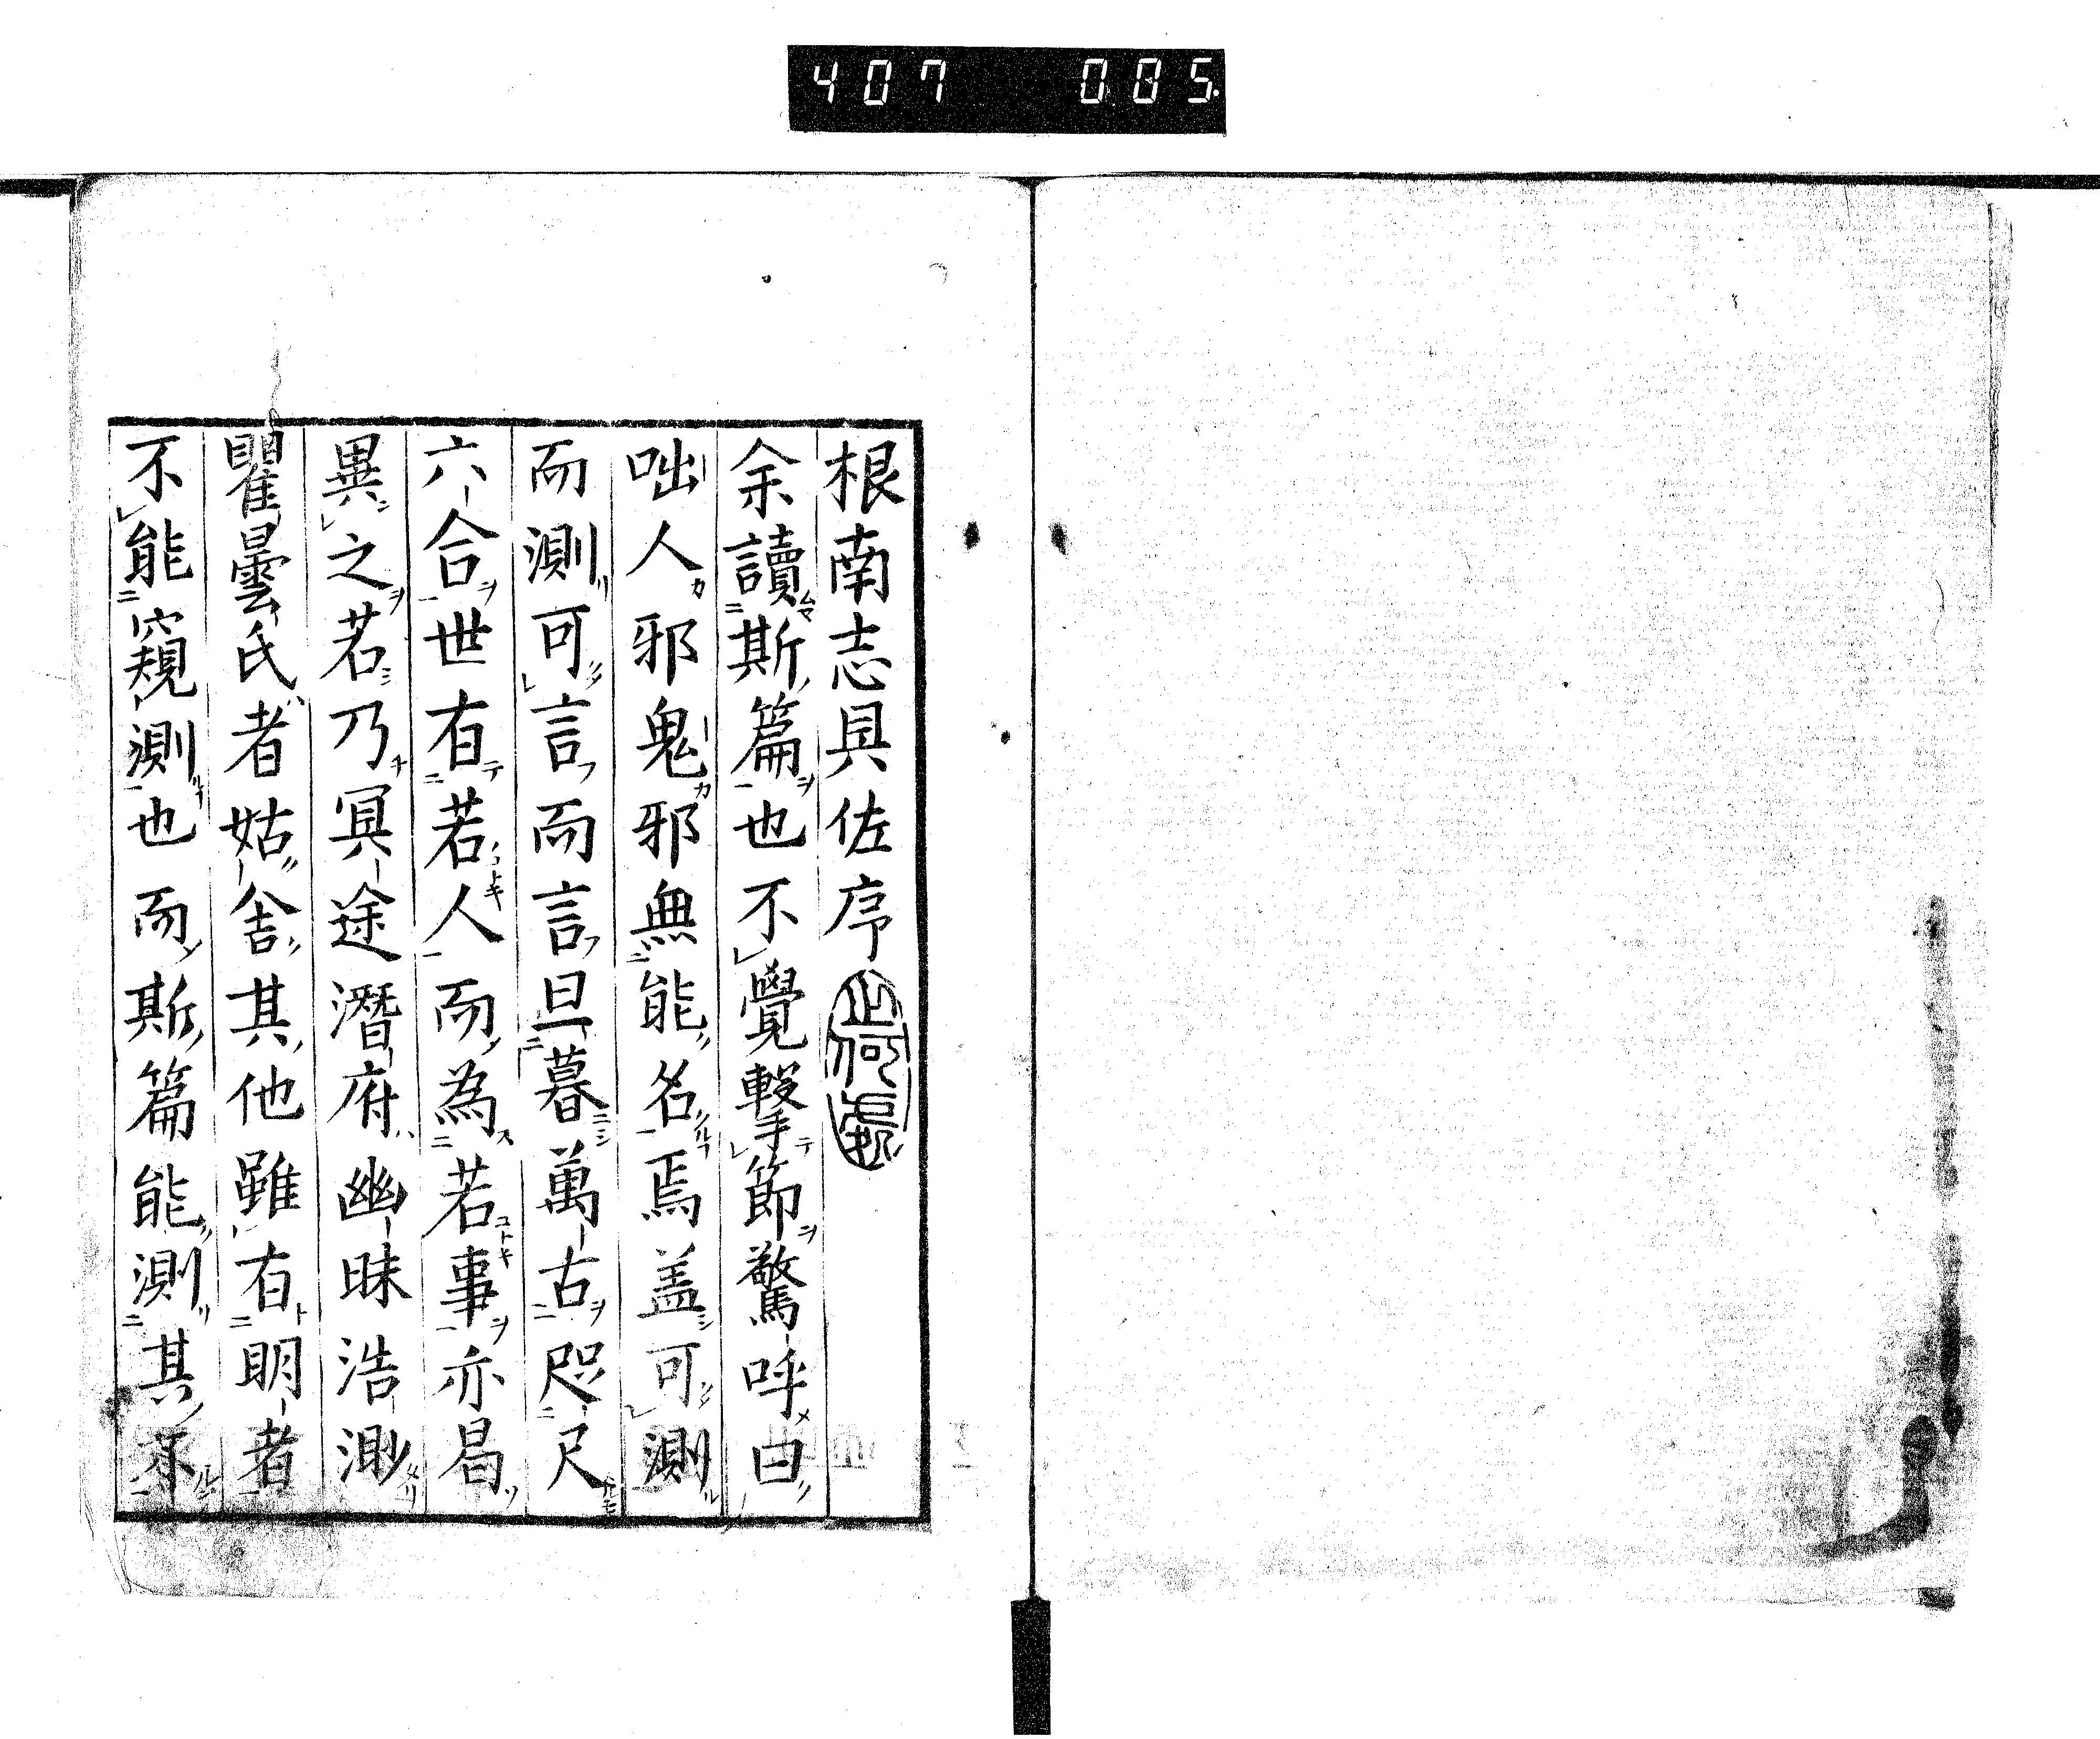 407 005
根南志具佐序
余讀斯篇也不覺撃節驚呼曰
咄人邪鬼邪無能名焉盖可測
而測可言而言旦暮萬古咫尺
六合世有若人而為若事亦曷
異之若乃冥途潛府幽昧浩渺
瞿曇氏者姑舍其他雖有明者
不能窺測也而斯篇能測其不